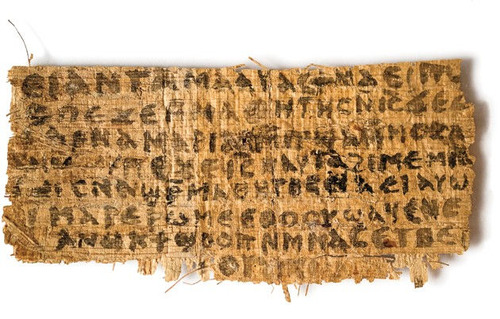 ⲉⲓⲁⲛ ⲧⲁⲙⲁⲁⲩ ⲁⲥϯ ⲛⲁⲉⲓ ⲡⲱ
ⲥ ⲡⲉϫⲉ ⲙⲙⲁⲑⲏⲧⲏⲥ ⲛⲓⲥ ϫⲉ ⲥ
ⲁⲣⲛⲁ ⲙⲁⲣⲓⲁⲙ ⲙⲡϣⲁ ⲙⲙⲟⲥ ⲁ
ⲡⲉϫⲉ ⲓⲥ ⲛⲁⲩ ⲧⲁϩⲓⲙⲉ ⲙⲛ
ⲥⲛⲁϣⲣⲙⲁⲑⲏⲧⲏⲥ ⲛⲁⲉⲓ ⲁⲩⲱ
ⲓ ⲙⲁⲣⲉⲣⲱⲙⲉ ⲉⲑⲟⲟⲩ ϣⲁϥⲉ ⲛⲉ
ⲁⲛⲟⲕ ϯϣⲟⲟⲡ ⲛⲙⲙⲁⲥ ⲉⲧⲃⲉ